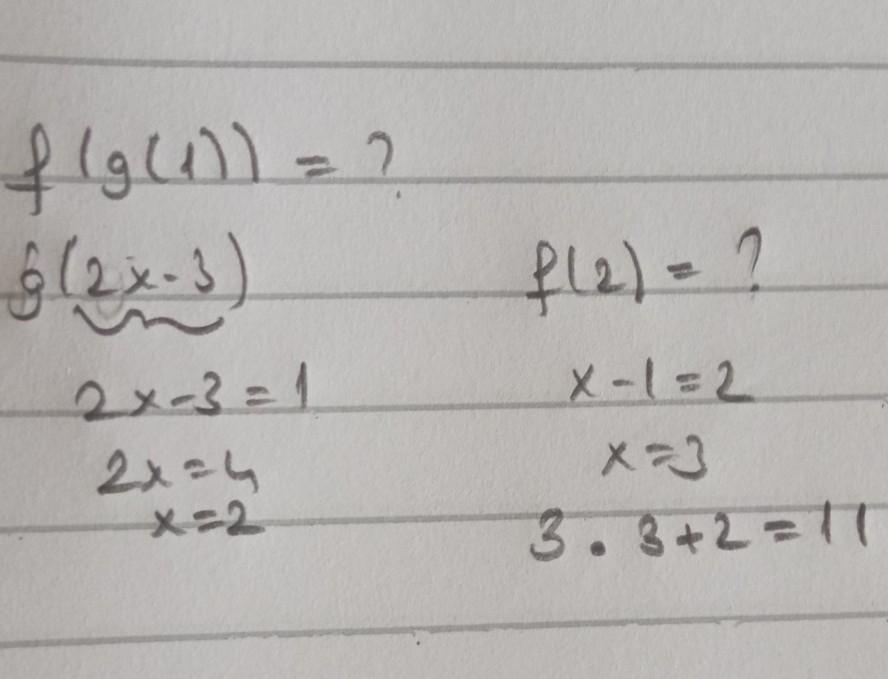 f(g(1)) = ?
g(2x-3)
2x-3=1
2x=4
x=2
f(2) = ?
x-1=2
x=3
3 . 3+2=11